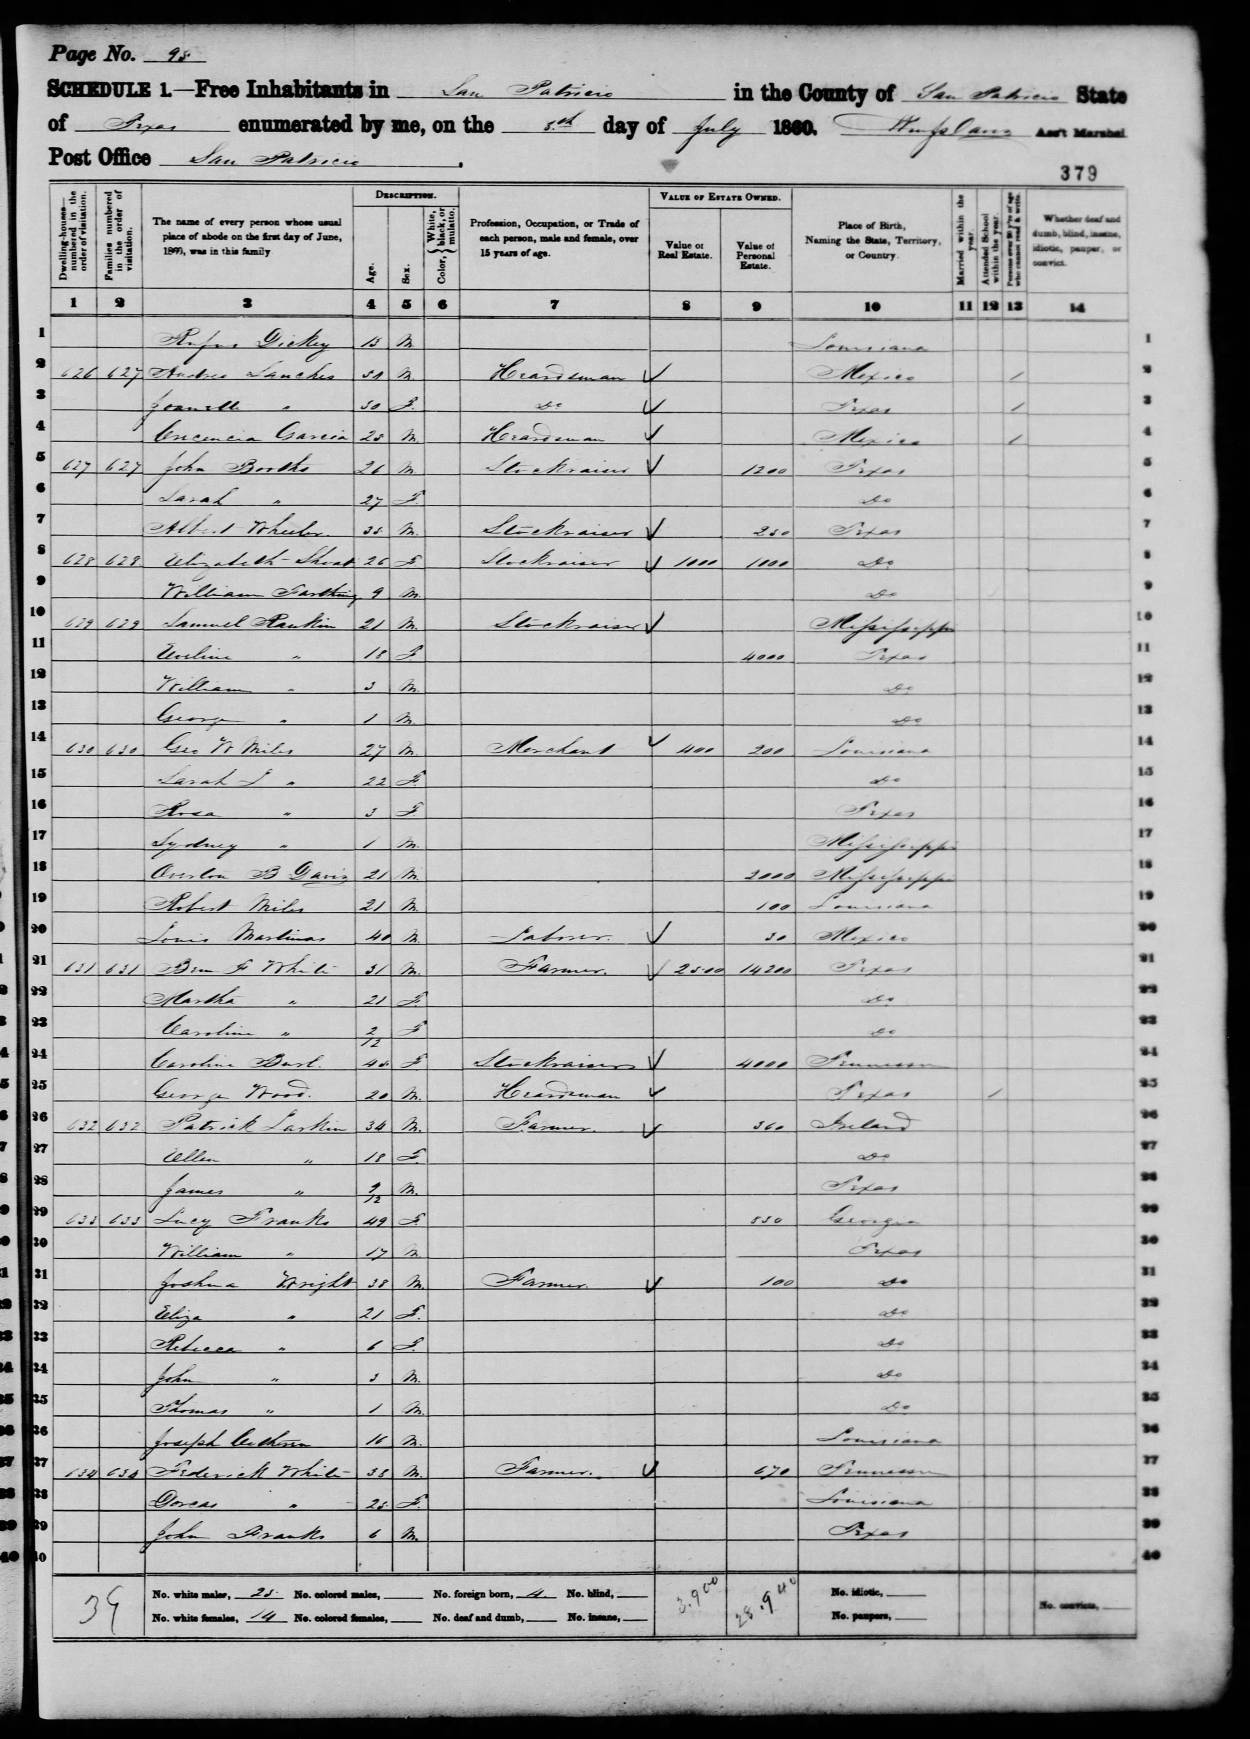 Page No. 95
SCHEDULE 1.—Free Inhabitants in San Patricio in the County of San Patricio State
of Texas enumerated by me, on the 5th day of July 1860. Ass't Marshal
Post Office San Patricio .
379
Dwelling-houses—numbered in the order of visitation. Families numbered in the order of visitation. The name of every person whose usual place of abode on the first day of June, 1860, was in this family. DESCRIPTION. Age. Sex. Color, { White, black, or mulatto. Profession, Occupation, or Trade of each person, male and female, over 15 years of age. VALUE OF ESTATE OWNED. Value of Real Estate. Value of Personal Estate. Place of Birth, Naming the State, Territory, or Country. Married within the year. Attended School within the year. Persons over 20 y'rs of age who cannot read & write. Whether deaf and dumb, blind, insane, idiotic, pauper, or convict.
1 2 3 4 5 6 7 8 9 10 11 12 13 14
1 Rufus Dickey 13 M. Louisiana 1
2 626 627 Andres Sanches M. Heardsman Mexico / 2
3 " 30 F. Do Texas / 3
4 Garcia 25 M. Heardsman Mexico / 4
5 627 627 John Booths 26 M. Stockraiser 1200 Texas 5
6 Sarah " 27 F. Do 6
7 Albert Wheeler 35 M. Stockraiser 250 Texas 7
8 628 628 Elizabeth 26 F. Stockraiser 1000 1000 Do 8
9 William 9 M. Do 9
10 629 629 Samuel Rankin 21 M. Stockraiser Mississippi 10
11 Eveline " 18 F. 4000 Texas 11
12 William " 3 M. Do 12
13 George " 1 M. Do 13
14 630 630 Geo W Miles 27 M. Merchant 400 200 Louisiana 14
15 Sarah J " 22 F. Do 15
16 Rosa " 3 F Texas 16
17 Sydney " 1 M. Mississippi 17
18 Overton B Davis 21 M. 2000 Mississippi 18
19 Robert Miles 21 M. 100 Louisiana 19
20 Louis Martinas 40 M. Laborer. 30 Mexico 20
21 631 631 Ben F White 31 M. Farmer. 2500 14200 Texas 21
22 Martha " 21 F. Do 22
23 Caroline " 2/12 F Do 23
24 Caroline 45 F Stockraiser 4000 Tennessee 24
25 George Wood. 20 M. Heardsman Texas / 25
26 632 632 Patrick Larkin 34 M. Farmer. 360 Ireland 26
27 Ellen " 18 F. Do 27
28 James " 9/12 M. Texas 28
29 633 633 Lucy Franks 49 F. 550 Georgia 29
30 William " 17 M. Texas 30
31 Joshua Wright 38 M. Farmer. 100 Do 31
32 Eliza " 21 F. Do 32
33 Rebecca " 6 F. Do 33
34 John " 3 M. Do 34
35 Thomas " 1 M. Do 35
36 Joseph 16 M. Louisiana 36
37 634 634 Frederick White 35 M. Farmer. 670 Tennessee 37
38 Dorcas " 25 F. Louisiana 38
39 John Franks 6 M. Texas 39
40 40
39 No. white males, 25 No. colored males, No. foreign born, 4 No. blind, 3.900 28.940 No. idiotic,
No. white females, 14 No. colored females, No. deaf and dumb, No. insane, No. paupers, No. convicts,